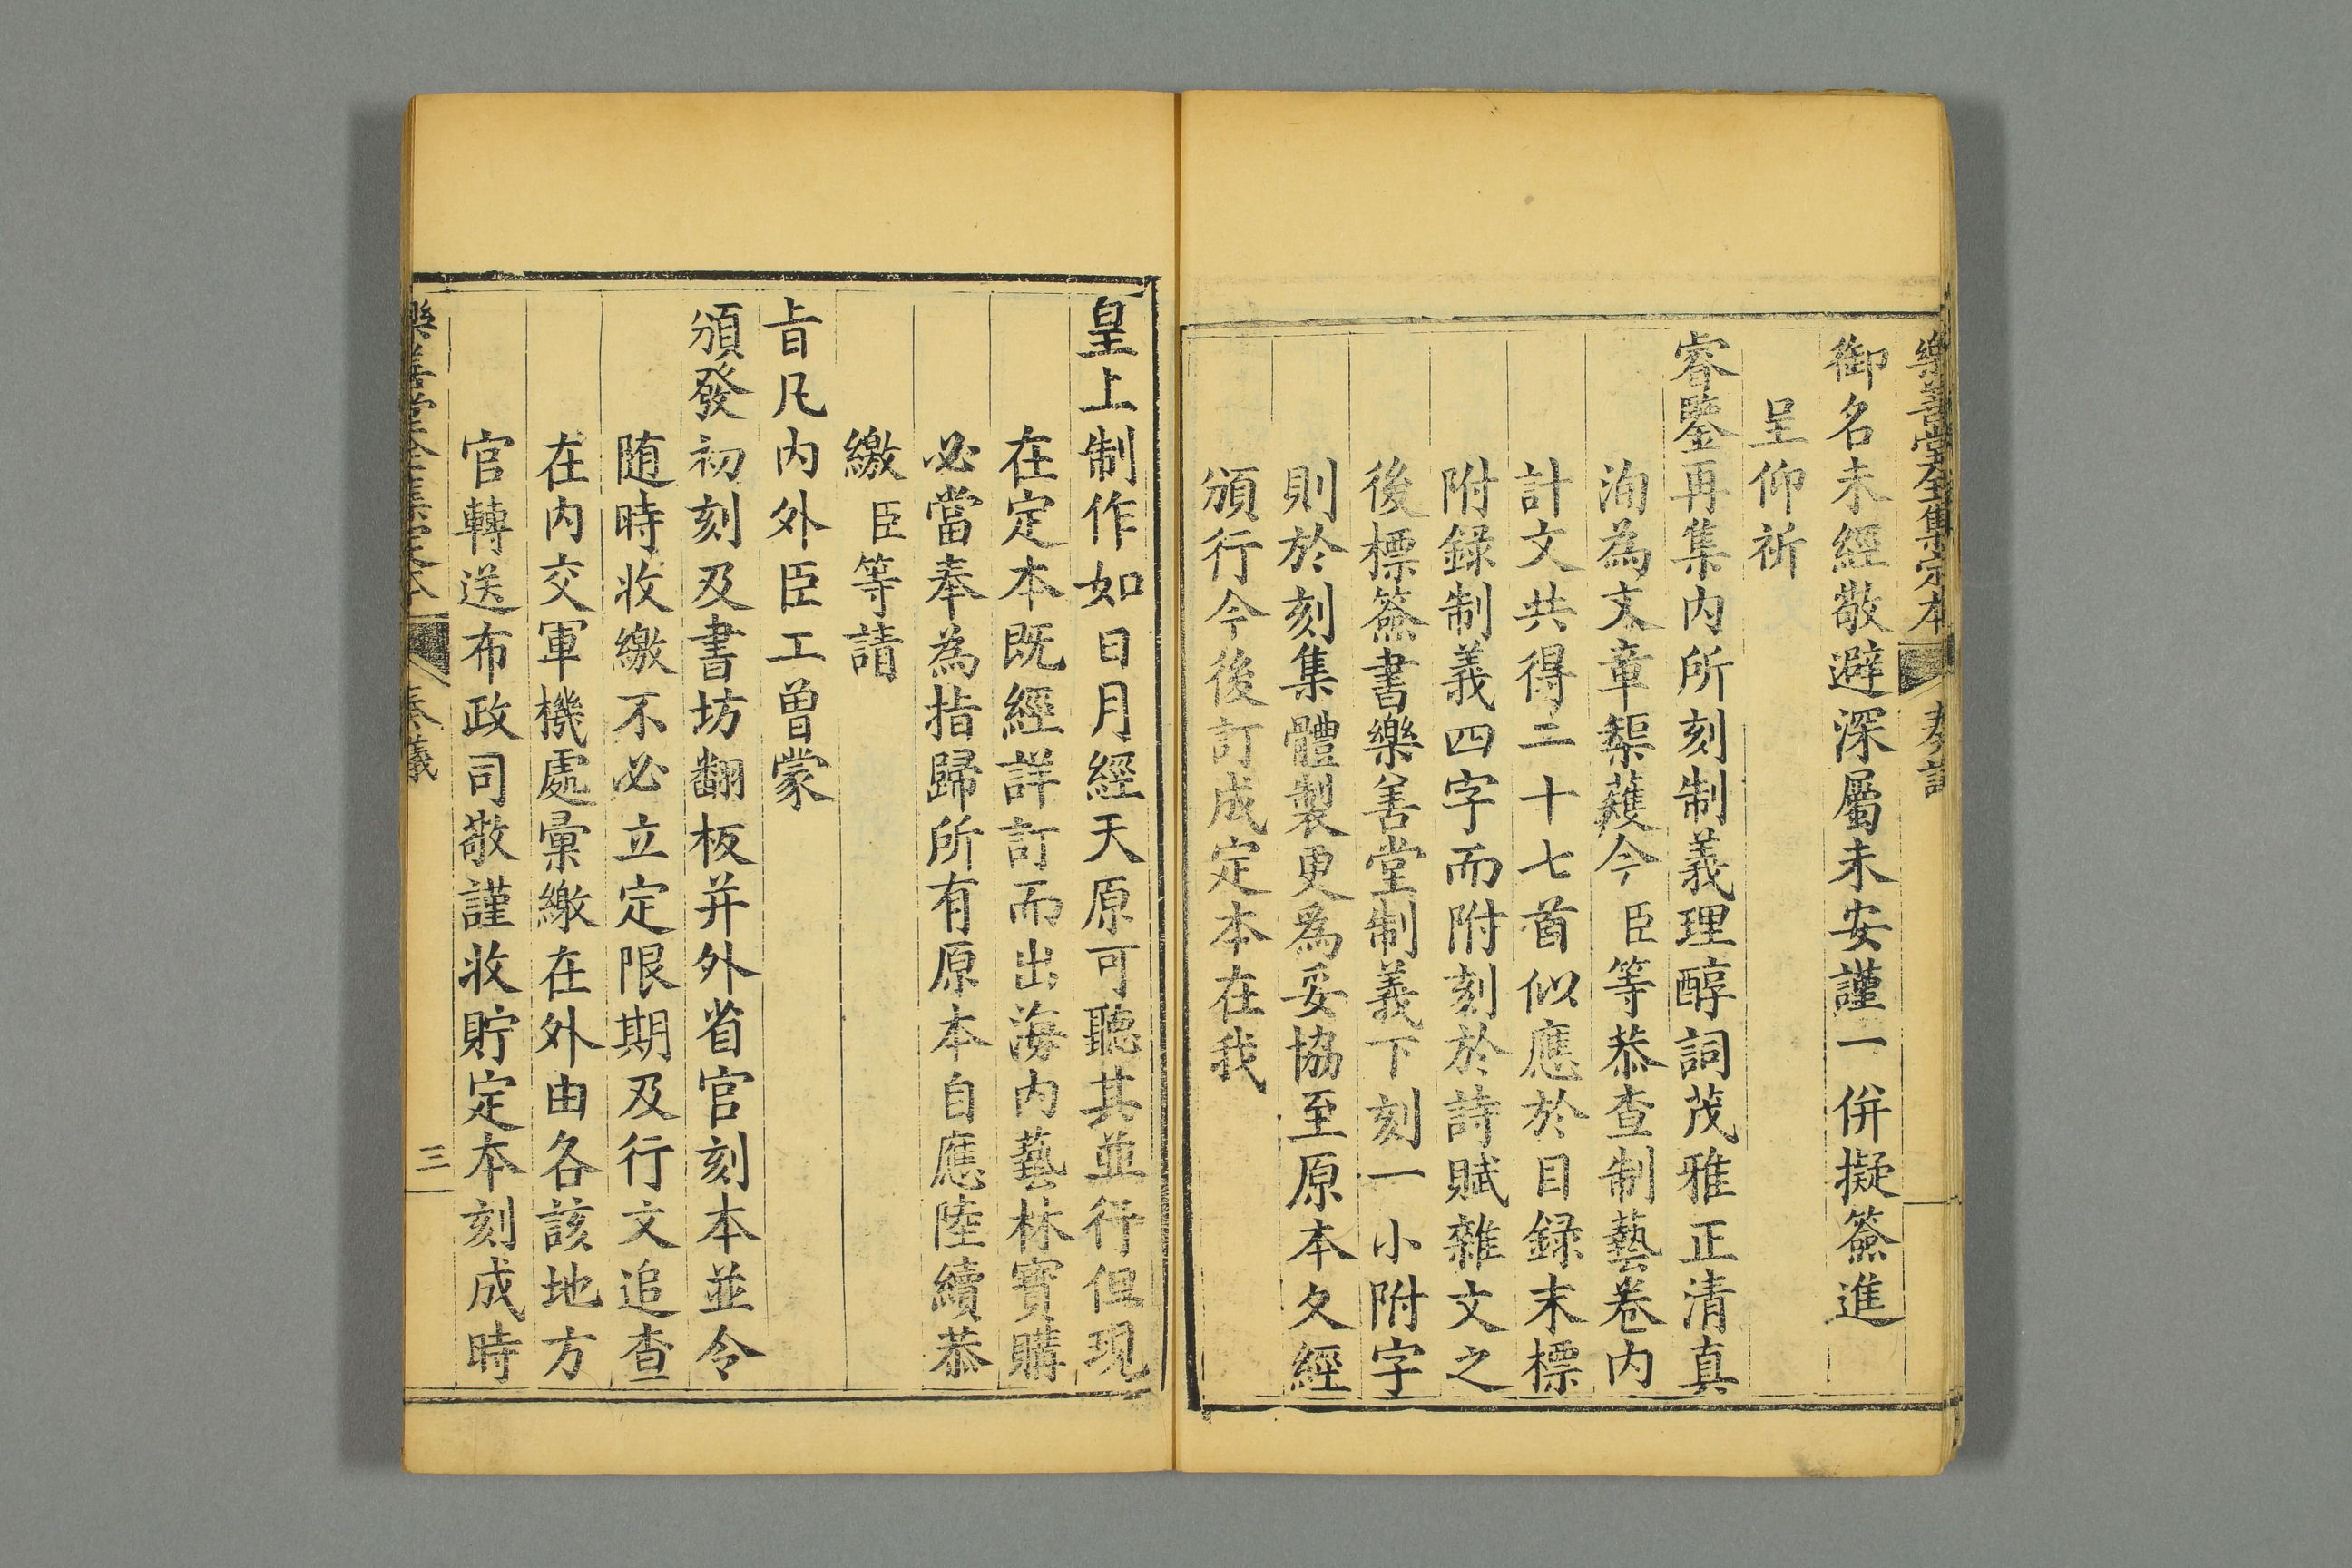 樂善堂全集定本 奏議
御名未經敬避深屬未安謹一併擬簽進
呈仰祈
睿鑒再集內所刻制義理醇詞茂雅正清真
洵為文章榘蒦今臣等恭查制藝卷内
計文共得二十七首似應於目録末標
附録制義四字而附刻於詩賦雜文之
後標簽書樂善堂制義下刻一小附字
則於刻集體製更為妥協至原本久經
頒行今後訂成定本在我
皇上制作如日月經天原可聽其並行但現
在定本既經詳訂而出海内藝林寶購
必當奉為指歸所有原本自應陸續恭
繳臣等請
旨凡内外臣工曾蒙
頒發初刻及書坊翻板并外省官刻本並令
随時收繳不必立定限期及行文追查
在内交軍機處彙繳在外由各該地方
官轉送布政司敬謹收貯定本刻成時
樂善堂全集定本 奏議 三